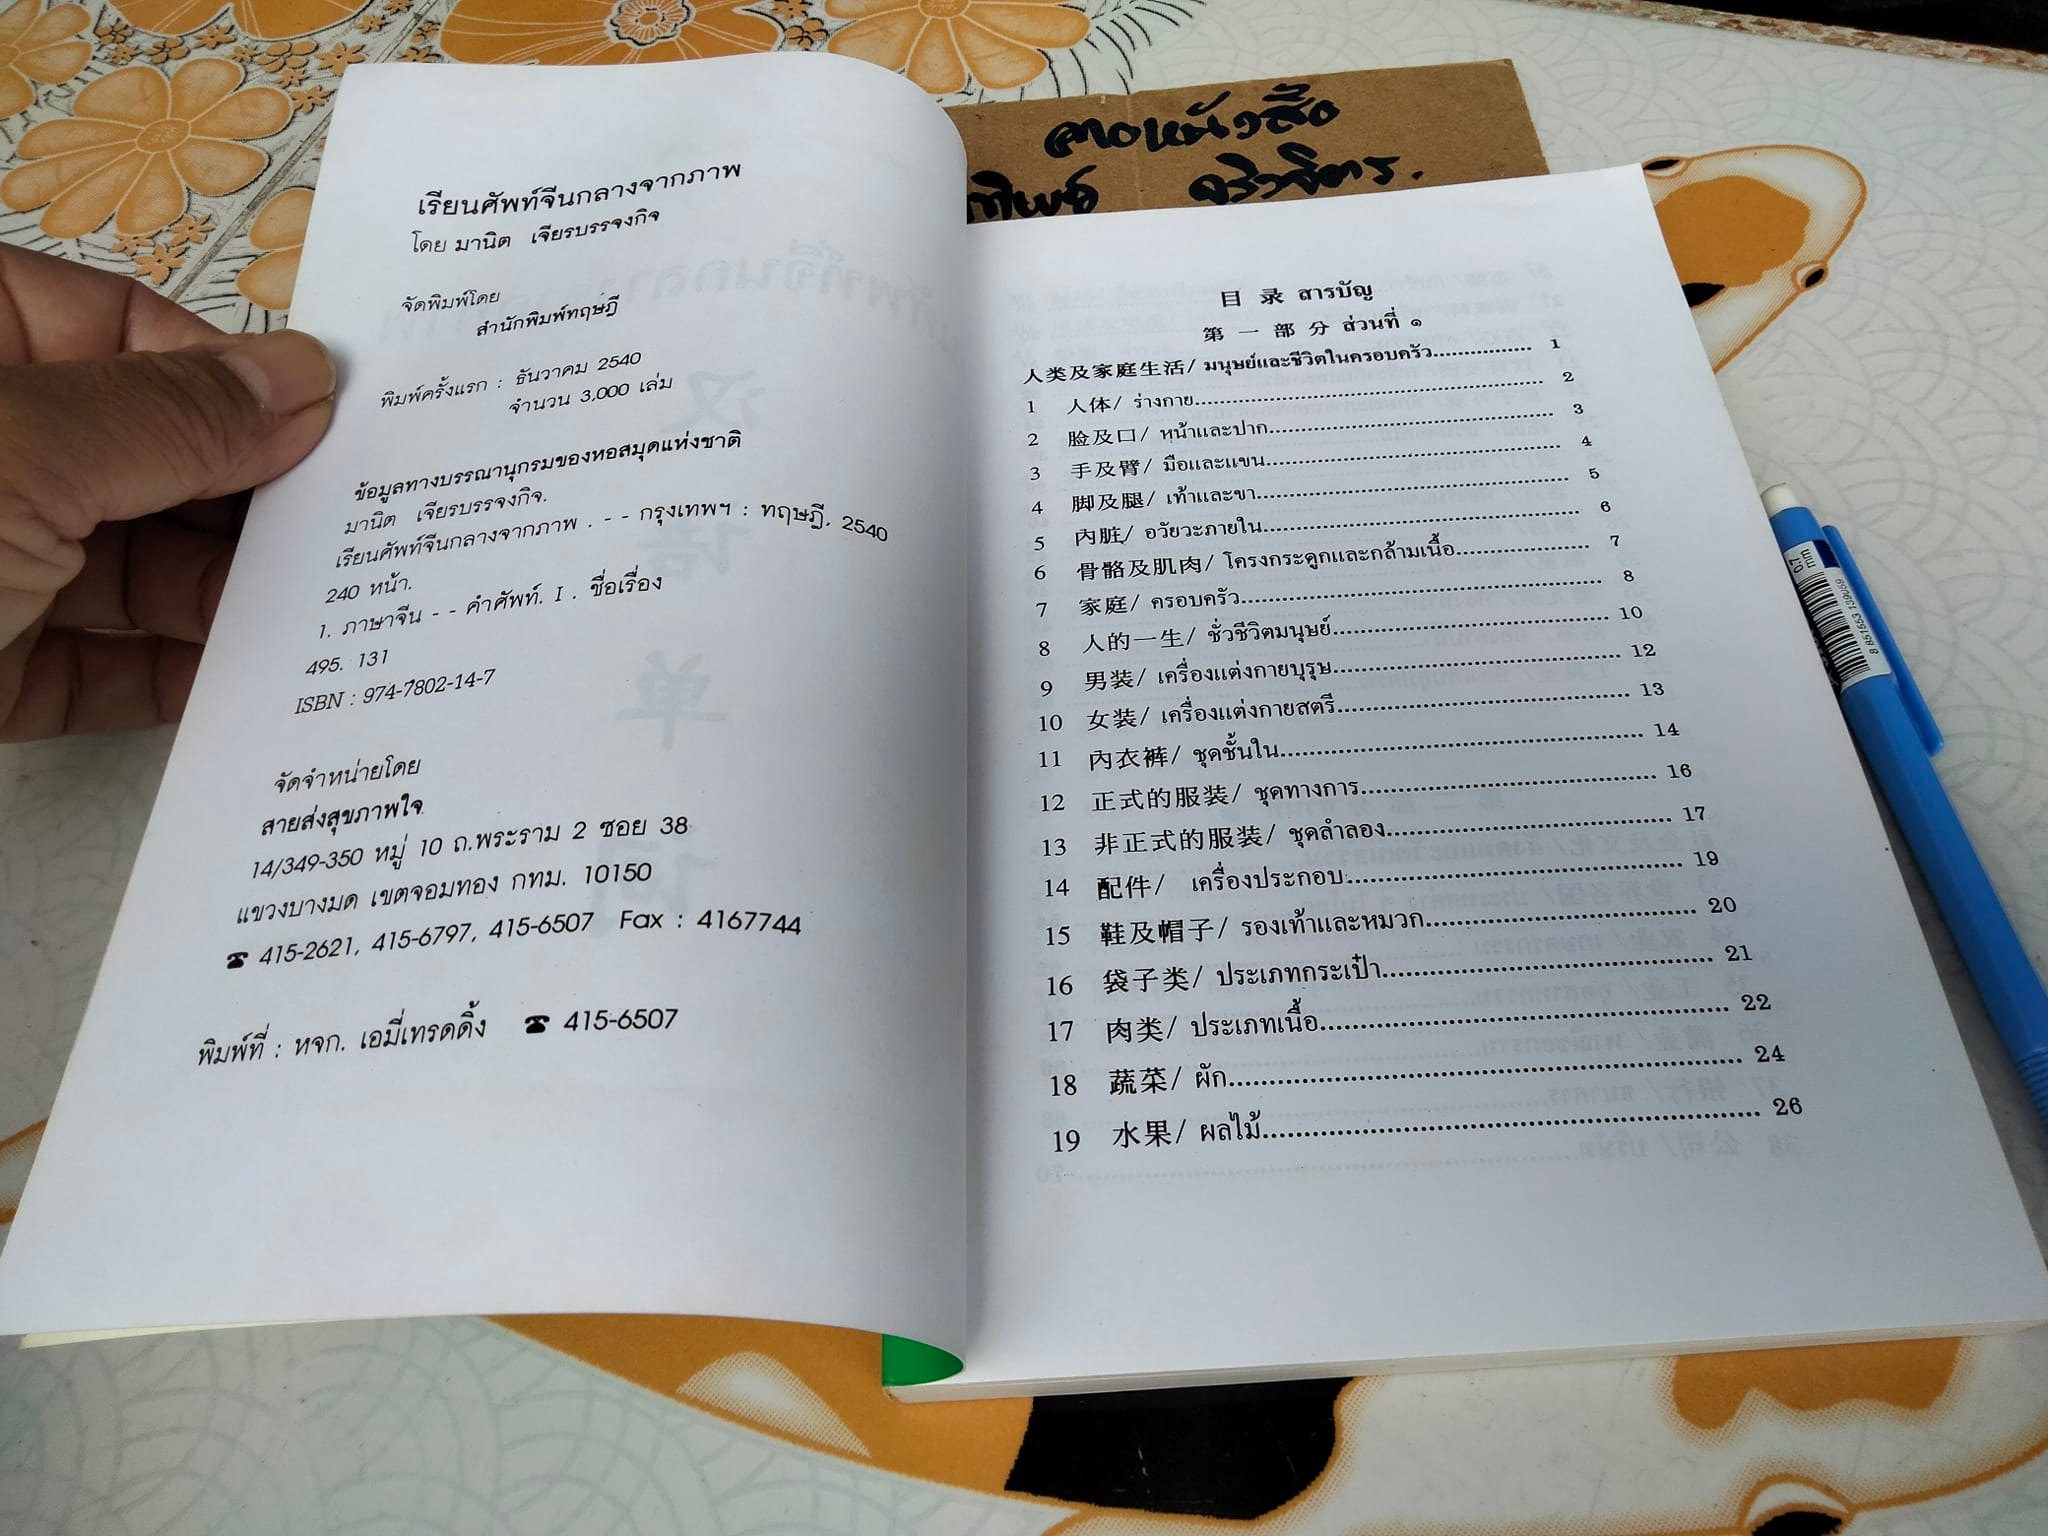 เรียนศัพท์จีนกลางจากภาพ
โดย มานิต เจียรบรรจงกิจ
จัดพิมพ์โดย
สำนักพิมพ์ทฤษฎี
พิมพ์ครั้งแรก : ธันวาคม 2540
จำนวน 3,000 เล่ม
ข้อมูลทางบรรณานุกรมของหอสมุดแห่งชาติ
มานิต เจียรบรรจงกิจ.
เรียนศัพท์จีนกลางจากภาพ . - - กรุงเทพฯ : ทฤษฎี, 2540
240 หน้า.
1. ภาษาจีน - - คำศัพท์. I . ชื่อเรื่อง
495. 131
ISBN : 974-7802-14-7
จัดจำหน่ายโดย
สายส่งสุขภาพใจ
14/349-350 หมู่ 10 ถ.พระราม 2 ซอย 38
แขวงบางมด เขตจอมทอง กทม. 10150
☎ 415-2621, 415-6797, 415-6507 Fax : 4167744
พิมพ์ที่ : หจก. เอมี่เทรดดิ้ง ☎ 415-6507
目 录 สารบัญ
第 一 部 分 ส่วนที่ ๑
人类及家庭生活/ มนุษย์และชีวิตในครอบครัว................ 1
1 人体/ ร่างกาย................ 2
2 脸及口/ หน้าและปาก................ 3
3 手及臂/ มือและแขน................ 4
4 脚及腿/ เท้าและขา................ 5
5 内脏/ อวัยวะภายใน................ 6
6 骨骼及肌肉/ โครงกระดูกและกล้ามเนื้อ................ 7
7 家庭/ ครอบครัว................ 8
8 人的一生/ ชั่วชีวิตมนุษย์................ 10
9 男装/ เครื่องแต่งกายบุรุษ................ 12
10 女装/ เครื่องแต่งกายสตรี................ 13
11 内衣裤/ ชุดชั้นใน................ 14
12 正式的服装/ ชุดทางการ................ 16
13 非正式的服装/ ชุดลำลอง................ 17
14 配件/ เครื่องประกอบ................ 19
15 鞋及帽子/ รองเท้าและหมวก................ 20
16 袋子类/ ประเภทกระเป๋า................ 21
17 肉类/ ประเภทเนื้อ................ 22
18 蔬菜/ ผัก................ 24
19 水果/ ผลไม้................ 26
0.7 mm